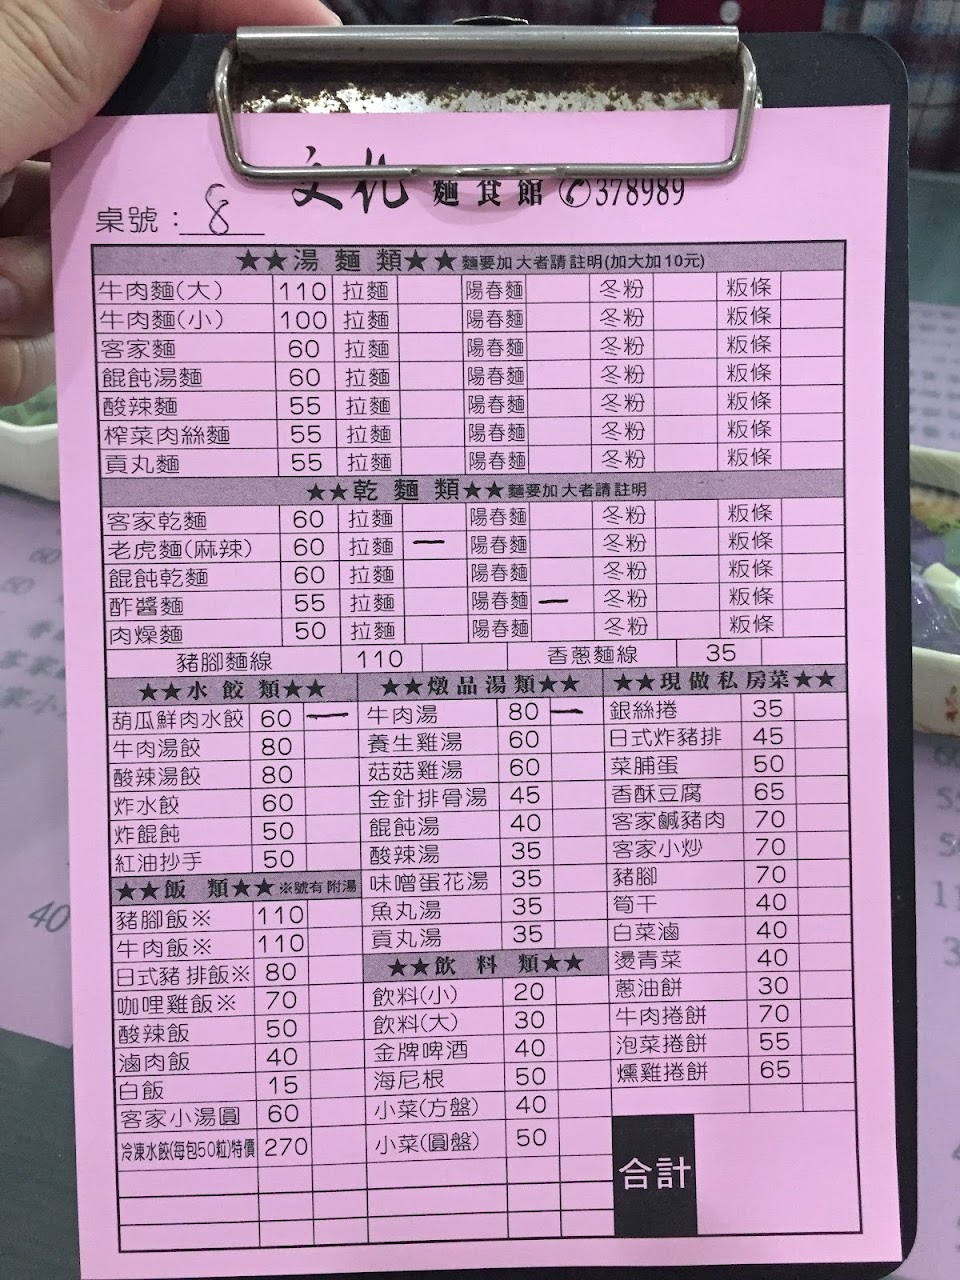 文化 麵食館 ✆378989
桌號：8
★★湯 麵 類★★麵要加大者請註明(加大加10元)
牛肉麵(大) 110 拉麵 陽春麵 冬粉 粄條
牛肉麵(小) 100 拉麵 陽春麵 冬粉 粄條
客家麵 60 拉麵 陽春麵 冬粉 粄條
餛飩湯麵 60 拉麵 陽春麵 冬粉 粄條
酸辣麵 55 拉麵 陽春麵 冬粉 粄條
榨菜肉絲麵 55 拉麵 陽春麵 冬粉 粄條
貢丸麵 55 拉麵 陽春麵 冬粉 粄條
★★乾 麵 類★★麵要加大者請註明
客家乾麵 60 拉麵 陽春麵 冬粉 粄條
老虎麵(麻辣) 60 拉麵 — 陽春麵 冬粉 粄條
餛飩乾麵 60 拉麵 陽春麵 冬粉 粄條
酢醬麵 55 拉麵 陽春麵 — 冬粉 粄條
肉燥麵 50 拉麵 陽春麵 冬粉 粄條
豬腳麵線 110 香蔥麵線 35
★★水 餃 類★★
葫瓜鮮肉水餃 60 —
牛肉湯餃 80
酸辣湯餃 80
炸水餃 60
炸餛飩 50
紅油抄手 50
★★飯 類★★※號有附湯
豬腳飯※ 110
牛肉飯※ 110
日式豬排飯※ 80
咖哩雞飯※ 70
酸辣飯 50
滷肉飯 40
白飯 15
客家小湯圓 60
冷凍水餃(每包50粒)特價 270
★★燉品湯類★★
牛肉湯 80 —
養生雞湯 60
菇菇雞湯 60
金針排骨湯 45
餛飩湯 40
酸辣湯 35
味噌蛋花湯 35
魚丸湯 35
貢丸湯 35
★★飲 料 類★★
飲料(小) 20
飲料(大) 30
金牌啤酒 40
海尼根 50
小菜(方盤) 40
小菜(圓盤) 50
★★現做私房菜★★
銀絲捲 35
日式炸豬排 45
菜脯蛋 50
香酥豆腐 65
客家鹹豬肉 70
客家小炒 70
豬腳 70
筍干 40
白菜滷 40
燙青菜 40
蔥油餅 30
牛肉捲餅 70
泡菜捲餅 55
燻雞捲餅 65
合計